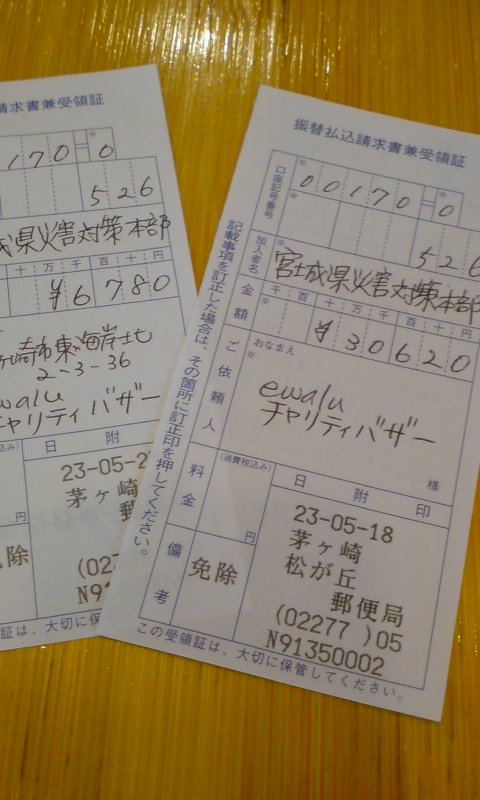 請求書兼受領証
170=0
526
城県災害対策本部
十万千百十円
¥6780
ヶ崎市東海岸北
2-3-36
ewalu
チャリティバザー
日附
23-05-2
茅ヶ崎
郵
免除
(022
N91
証は、大切に保
振替払込請求書兼受領証
口座記号番号
00170=0
526
加入者名
宮城県災害対策本部
金額
千百十万千百十円
¥30620
ご依頼人
おなまえ
ewalu
チャリティバザー
様
料金
(消費税込み)
円
日附印
23-05-18
茅ヶ崎
松が丘
郵便局
(02277 )05
N91350002
備考
免除
記載事項を訂正した場合は、その箇所に訂正印を押してください。
この受領証は、大切に保管してください。